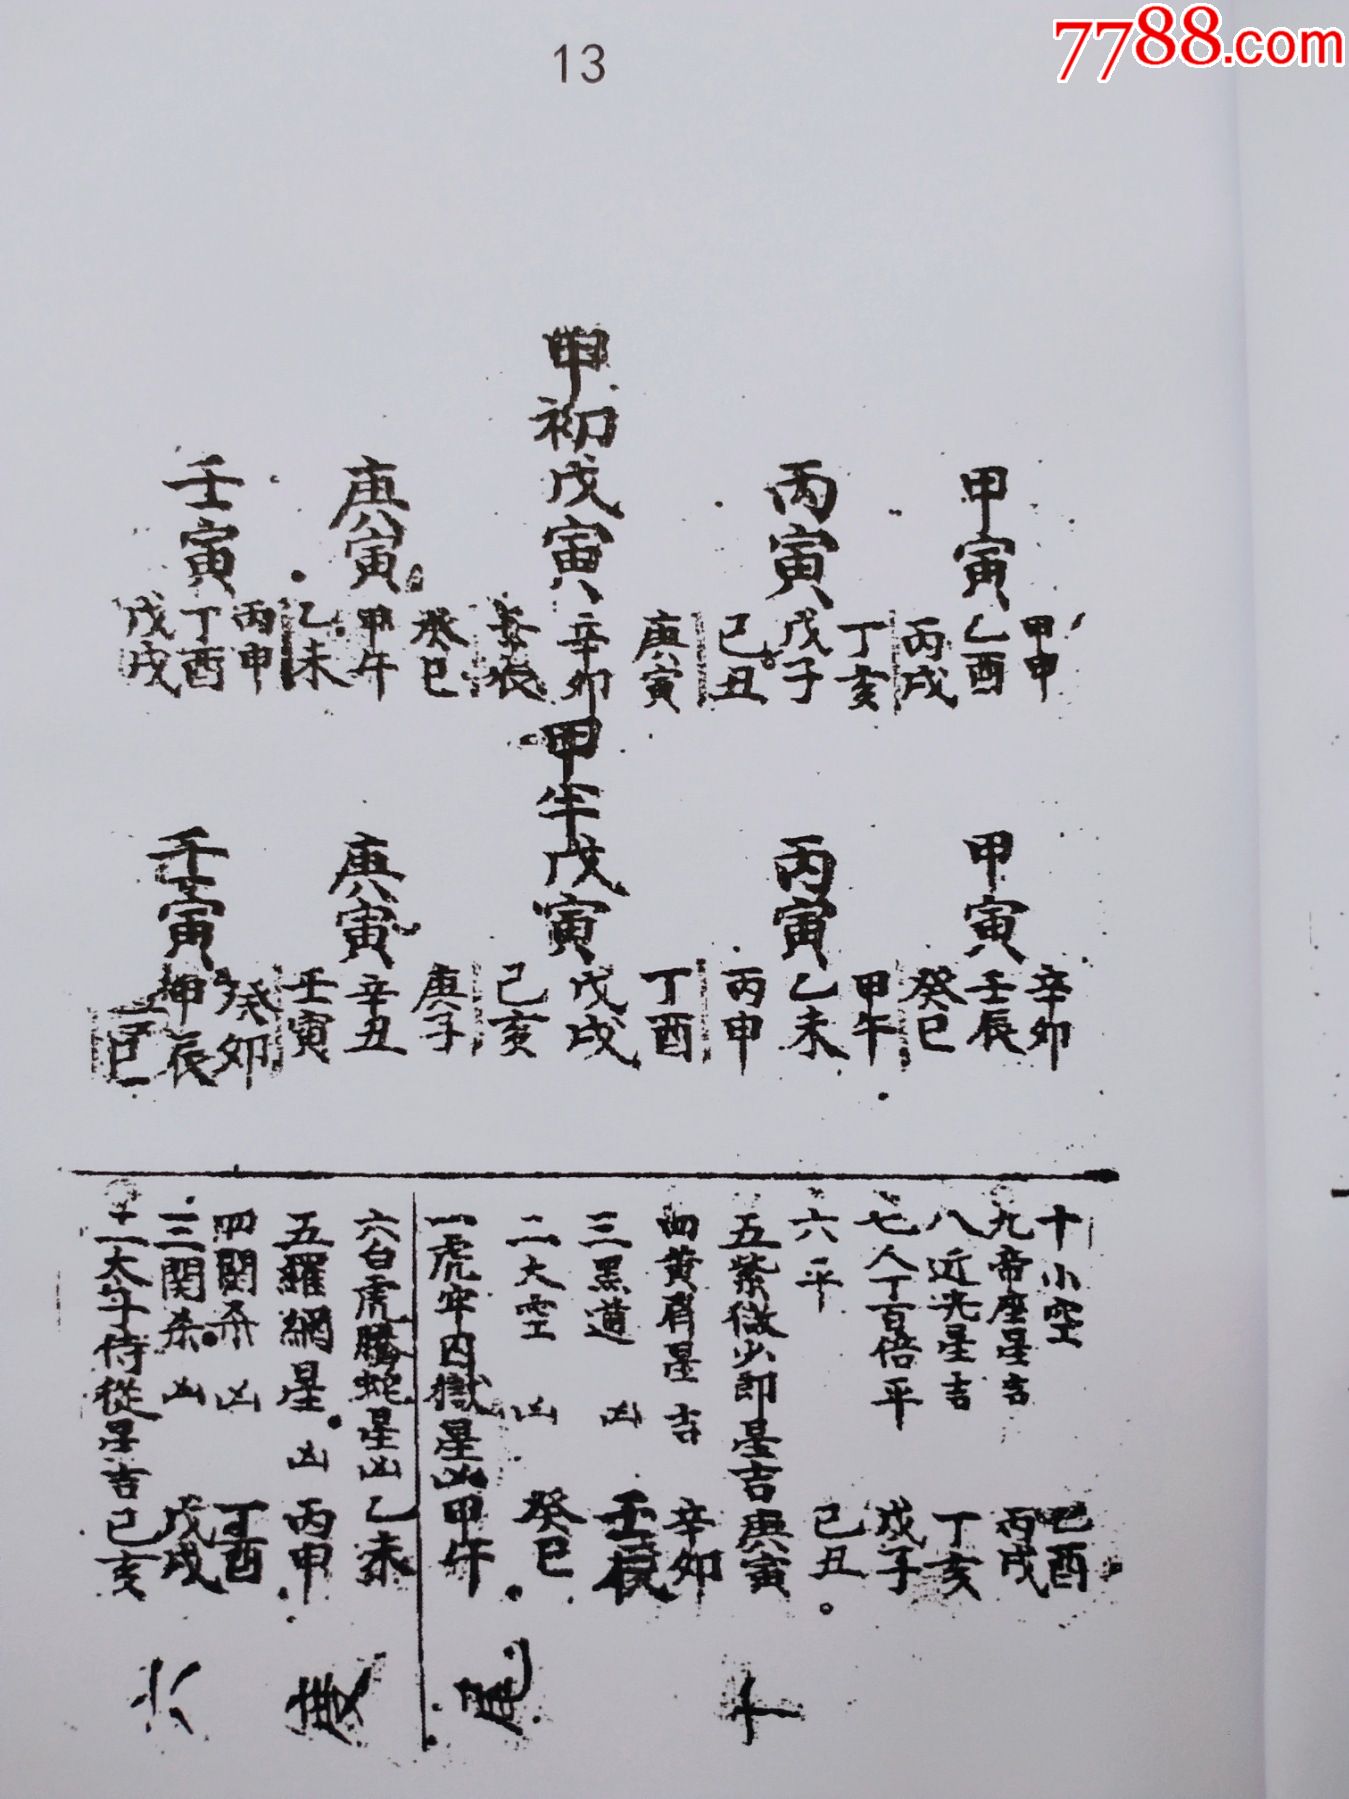 7788.com
13
甲初
甲寅
甲申
乙酉
丙戌
丙寅
丁亥
戊子
己丑
戊寅
庚寅
辛卯
庚寅
癸巳
甲午
乙未
壬寅
丙申
丁酉
戊戌
甲牢
甲寅
辛卯
壬辰
癸巳
丙寅
甲午
乙未
丙申
戊寅
丁酉
戊戌
己亥
庚寅
庚子
辛丑
壬寅
壬寅
癸卯
甲辰
乙巳
十小空 乙酉
九帝座星吉 丙戌
八近光星吉 丁亥
七人丁百倍平 戊子
六平 己丑
五紫微少郎星吉 庚寅
四黄 星吉 辛卯
三黑道 凶 壬辰
二大空 凶 癸巳
一虎牢囚獄星凶 甲午
六白虎騰蛇星凶 乙未
五羅網星 凶 丙申
四関杀 凶 丁酉
三関杀 凶 戊戌
侍從星吉 己亥